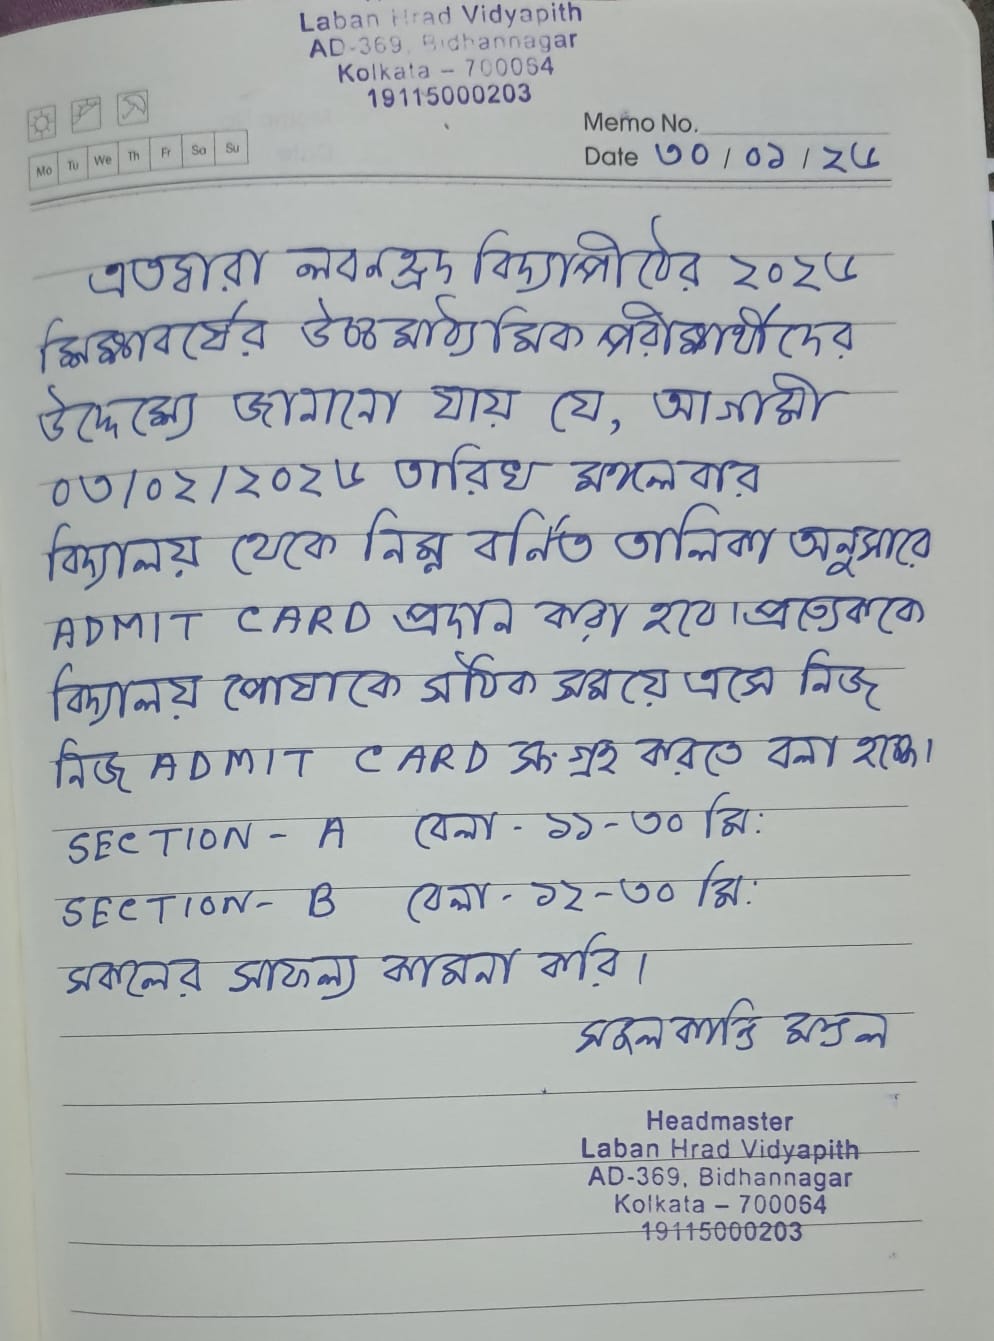 Laban Hrad Vidyapith
AD-369, Bidhannagar
Kolkata – 700064
19115000203
Memo No.
Mo Tu We Th Fr Sa Su
Date ৩০/০১/২৬
এতদ্বারা লবনহ্রদ বিদ্যাপীঠের ২০২৬
শিক্ষাবর্ষের উচ্চমাধ্যমিক পরীক্ষার্থীদের
উদ্দেশ্যে জানানো যায় যে, আগামী
০৩/০২/২০২৬ তারিখ মঙ্গলবার
বিদ্যালয় থেকে নিম্ন বর্নিত তালিকা অনুসারে
ADMIT CARD প্রদান করা হবে। প্রত্যেককে
বিদ্যালয় পোষাকে সঠিক সময়ে এসে নিজ
নিজ ADMIT CARD সংগ্রহ করতে বলা হচ্ছে।
SECTION - A বেলা - ১১-৩০ মি:
SECTION - B বেলা - ১২-৩০ মি:
সকলের সাফল্য কামনা করি।
কান্তি মণ্ডল
Headmaster
Laban Hrad Vidyapith
AD-369, Bidhannagar
Kolkata – 700064
19115000203